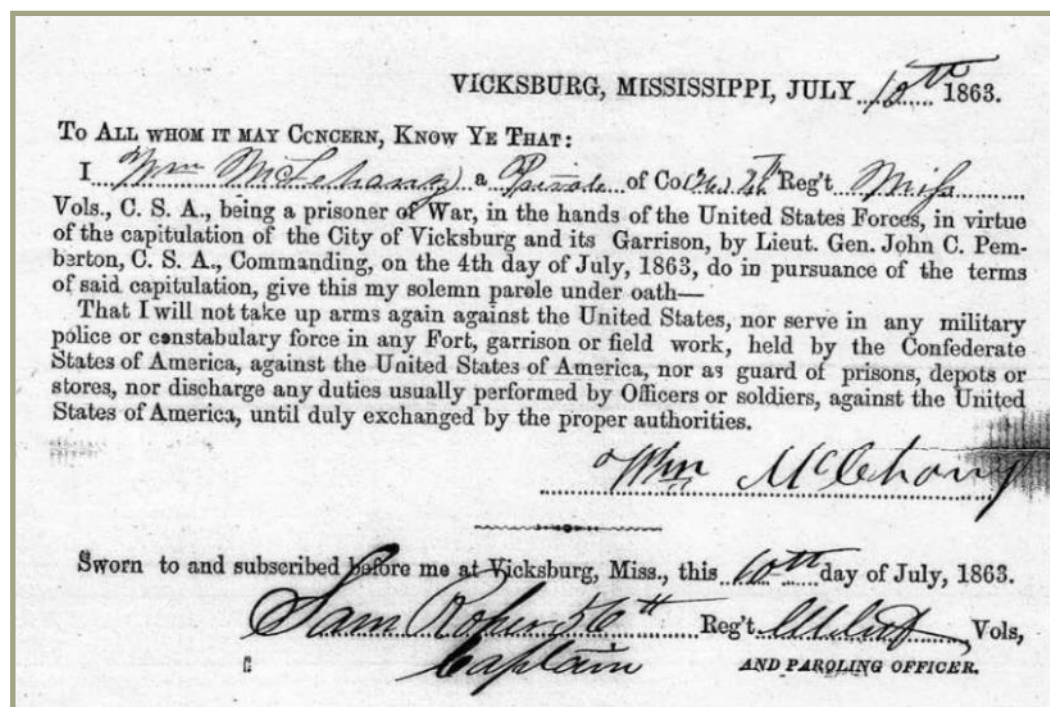 VICKSBURG, MISSISSIPPI, JULY 10th 1863.
TO ALL WHOM IT MAY CCNCERN, KNOW YE THAT:
I Wm a Private of Co Reg't Miss
Vols., C. S. A., being a prisoner of War, in the hands of the United States Forces, in virtue
of the capitulation of the City of Vicksburg and its Garrison, by Lieut. Gen. John C. Pem-
berton, C. S. A., Commanding, on the 4th day of July, 1863, do in pursuance of the terms
of said capitulation, give this my solemn parole under oath—
That I will not take up arms again against the United States, nor serve in any military
police or constabulary force in any Fort, garrison or field work, held by the Confederate
States of America, against the United States of America, nor as guard of prisons, depots or
stores, nor discharge any duties usually performed by Officers or soldiers, against the United
States of America, until duly exchanged by the proper authorities.
Wm
Sworn to and subscribed before me at Vicksburg, Miss., this 10th day of July, 1863.
Sam Reg't Vols,
Captain AND PAROLING OFFICER.